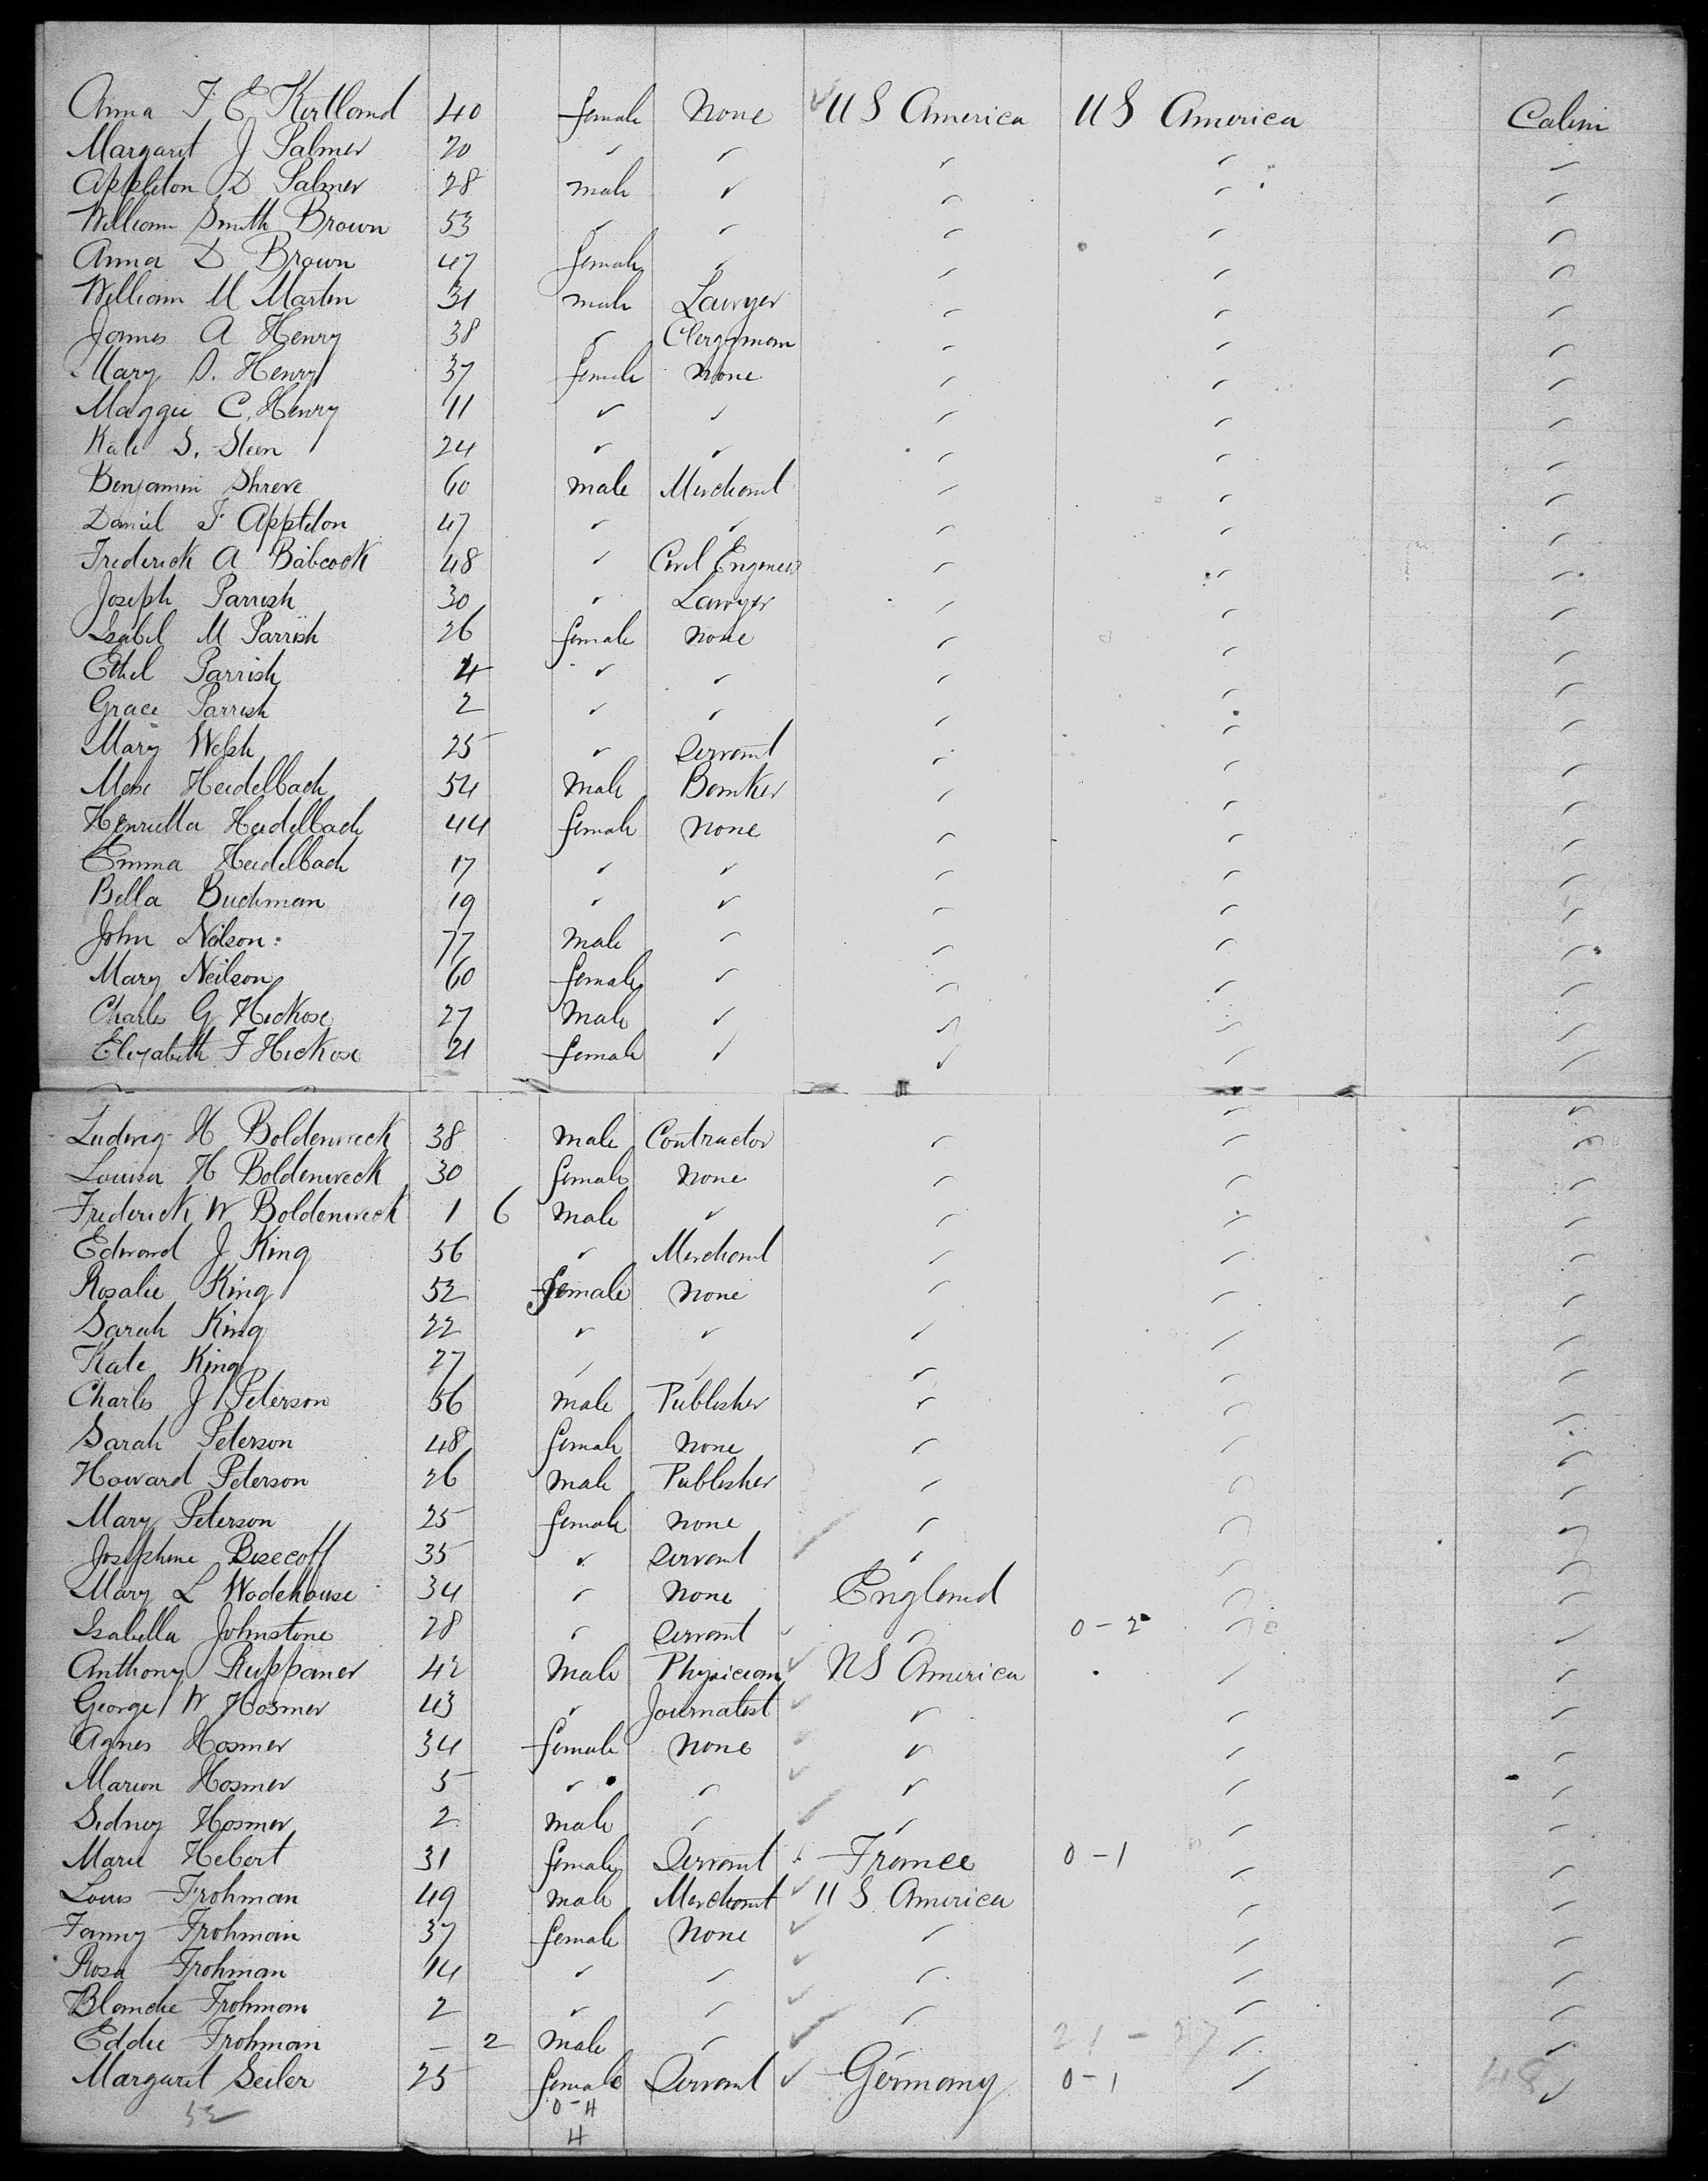 Anna F. E Kirtland 40 female None US America US America Cabin
Margaret J Palmer 20 " " " " "
Appleton D Palmer 28 male " " " "
William Smith Brown 53 " " " " "
Anna D Brown 47 female " " " "
William M Martin 31 male Lawyer " " "
James A Henry 38 " Clergyman " " "
Mary D. Henry 37 female None " " "
Maggie C. Henry 11 " " " " "
Kate S. Steen 24 " " " " "
Benjamin Shreve 60 male Merchant " " "
Daniel F Appleton 47 " " " " "
Frederick A Babcock 48 " Civil Engineer " " "
Joseph Parrish 30 " Lawyer " " "
Isabel M Parrish 26 female None " " "
Ethel Parrish 4 " " " " "
Grace Parrish 2 " " " " "
Mary Welsh 25 " Servant " " "
Heidelbach 54 male Banker " " "
Henrietta Heidelbach 44 female None " " "
Emma Heidelbach 17 " " " " "
Bella Buchman 19 " " " " "
John Neilson 77 male " " " "
Mary Neilson 60 female " " " "
Charles G Hickose 27 male " " " "
Elizabeth F Hickose 21 female " " " "
Ludwig H Boldenweck 38 male Contractor " " "
Louisa H Boldenweck 30 female None " " "
Frederick W Boldenweck 1 6 male " " " "
Edward J King 56 " Merchant " " "
Rosalie King 52 female None " " "
Sarah King 22 " " " " "
Kate King 27 " " " " "
Charles J Peterson 56 male Publisher " " "
Sarah Peterson 48 female None " " "
Howard Peterson 26 male Publisher " " "
Mary Peterson 25 female None " " "
Josephine Bisecoff 35 " Servant " " "
Mary L Wodehouse 34 " None England " "
Isabella Johnstone 28 " Servant " 0-2 " "
Anthony Ruppaner 42 male Physician US America " "
George W Hosmer 43 " Journalist " " "
Agnes Hosmer 34 female None " " "
Marion Hosmer 5 " " " " "
Sidney Hosmer 2 male " " " "
Marie Hebert 31 female Servant France 0-1 " "
Louis Frohman 49 male Merchant US America " "
Fanny Frohman 37 female None " " "
Rosa Frohman 14 " " " " "
Blanche Frohman 2 " " " " "
Eddie Frohman - 2 male " " 21-27 " "
Margaret Seiler 25 female Servant Germany 0-1 " 48 "
52 0-4
4